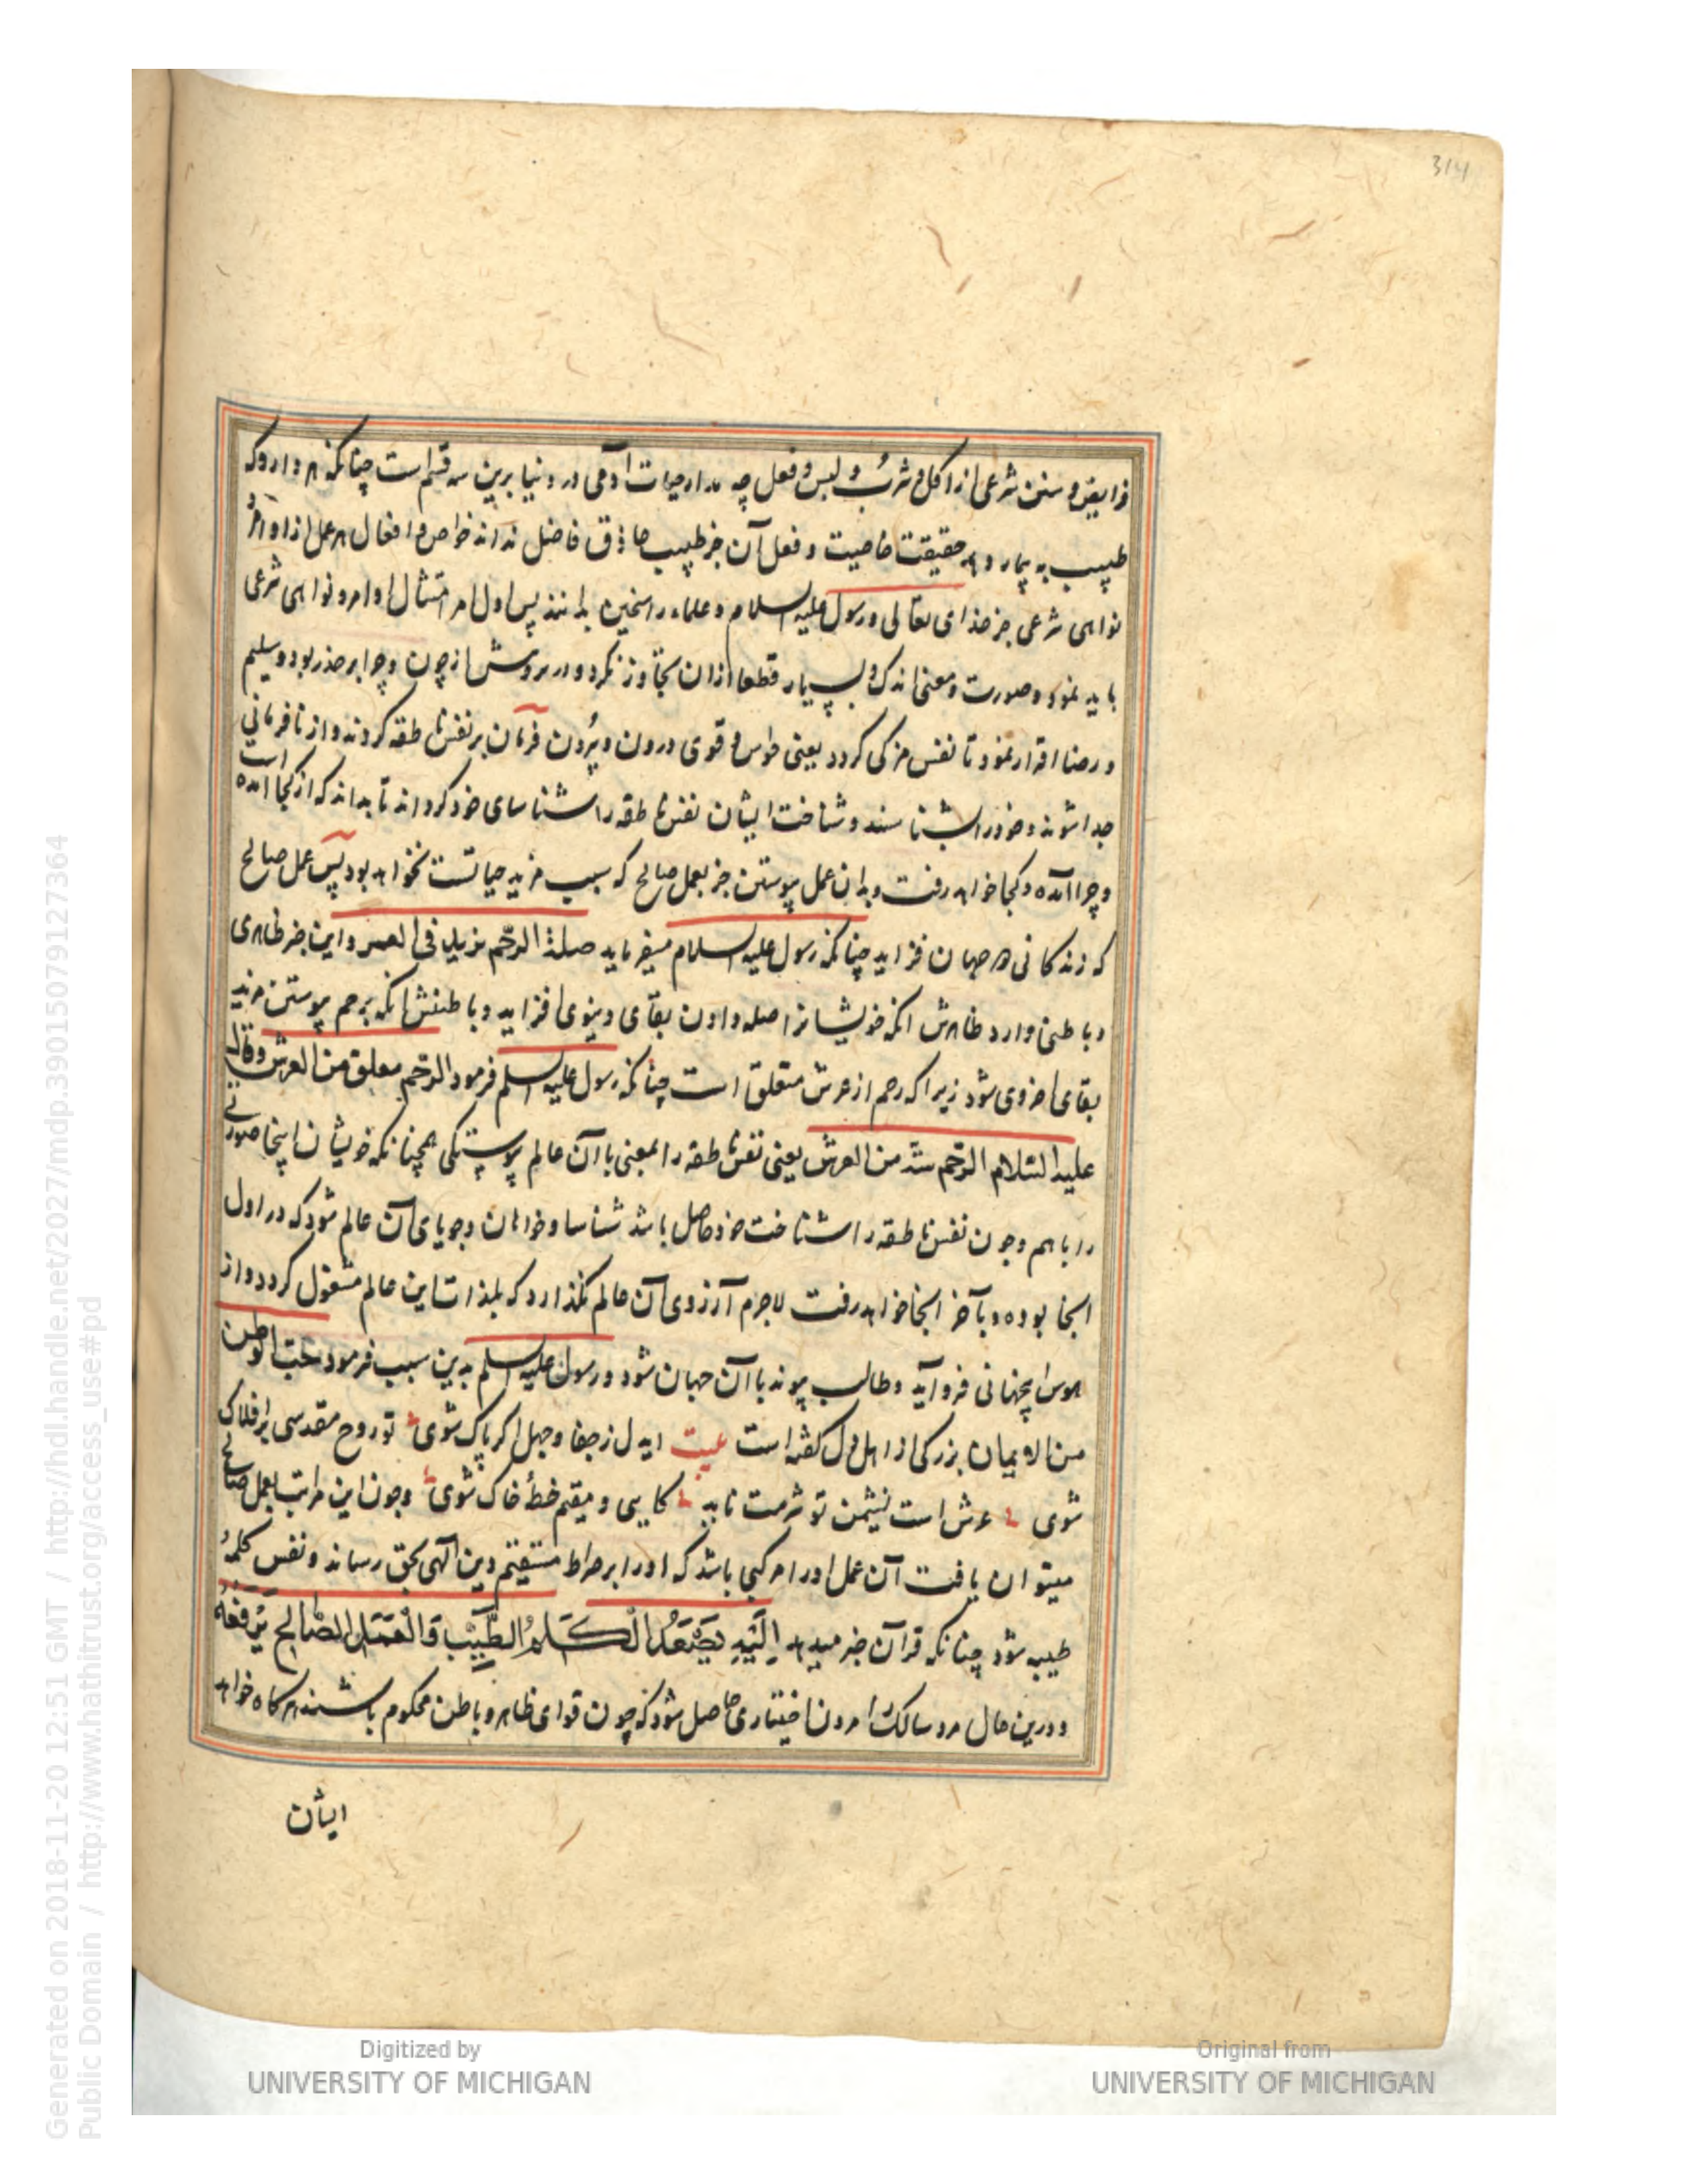 314
فرایض و سنن شرعی از اکل و شرب و لبس و فعل چه مدار حیات آدمی در دنیا برین سه قسم است چنانکه هر دارو که
طبیب به بیمار دهد حقیقت خاصیت و فعل آن جز طبیب حاذق فاضل نداند خواص و افعال هر عمل از اوامر
نواهی شرعی جز خدای تعالی و رسول علیه السلام و علماء راسخین ندانند پس اول امر امتثال اوامر و نواهی شرعی
باید نمود و صورت و معنی اندک و بسیار قطعا ازان تجاوز نکرد و در بروش از چون و چرا بر حذر بود و تسلیم
و رضا اقرار نمود تا نفس مزکی کردد یعنی حواس و قوی درون و بیرون فرمان بر نفس ناطقه کردند و از نافرمانی
جدا شوند و خود را بشناسند و شناخت ایشان نفس ناطقه را شناسای خود کرداند تا بداند که از کجا آمده است
و چرا آمده و کجا خواهد رفت و بدان عمل پیوستن جز بعمل صالح که سبب مزید حیاتست نخواهد بود پس عمل صالح
که زندکانی هر جهان فزاید چنانکه رسول علیه السلام میفرماید صلة الرحم یزید فی العمر و این خبر ظاهری
و باطنی دارد ظاهرش انکه خویشانرا صله دادن بقای دنیوی افزاید و باطنش انکه برحم پیوستن مزید
بقای اخروی شود زیرا که رحم از عرش متعلق است چنانکه رسول علیه السلم فرمود الرحم معلق من العرش وقال
علیه السلام الرحم من العرش یعنی نفس ناطقه را بمعنی با آن عالم پیوستکی همچنانکه خویشان اینجا صورتی
را باهم و چون نفس ناطقه را شناخت خود حاصل باشد شناسا و خواهان و جویای آن عالم شود که در اول
انجا بوده و بآخر انجا خواهد رفت لاجرم آرزوی آن عالم نکذارد که بلذات این عالم مشغول کردد و از
هوس اینجهانی فرو آید و طالب پیوند با آن جهان شود و رسول علیه السلم بدین سبب فرمود حب الوطن
من الایمان بزرکی از اهل دل کفته است بیت ایدل ز جفا و جهل اکر پاک شوی تو روح مقدسی بر افلاک
شوی عرش است نشیمن تو شرمت ناید کایی و مقیم خطهٔ خاک شوی و چون این مراتب بعمل صالح
میتوان یافت آن عمل او را مرکبی باشد که او را بر صراط مستقیم دین الهی بحق رساند و نفس کلمهٔ
طیبه شود چنانکه قرآن خبر میدهد اِلَیْهِ یَصْعَدُ الْکَلِمُ الطَّیِّبُ وَالْعَمَلُ الصَّالِحُ یَرْفَعُهُ
و درین حال مرد سالک را مردن اختیاری حاصل شود که چون قوای ظاهر و باطن محکوم باشند هرکاه خواهد
ایشان
Digitized by
UNIVERSITY OF MICHIGAN
Original from
UNIVERSITY OF MICHIGAN
Generated on 2018-11-20 12:51 GMT / http://hdl.handle.net/2027/mdp.39015079127364
Public Domain / http://www.hathitrust.org/access_use#pd